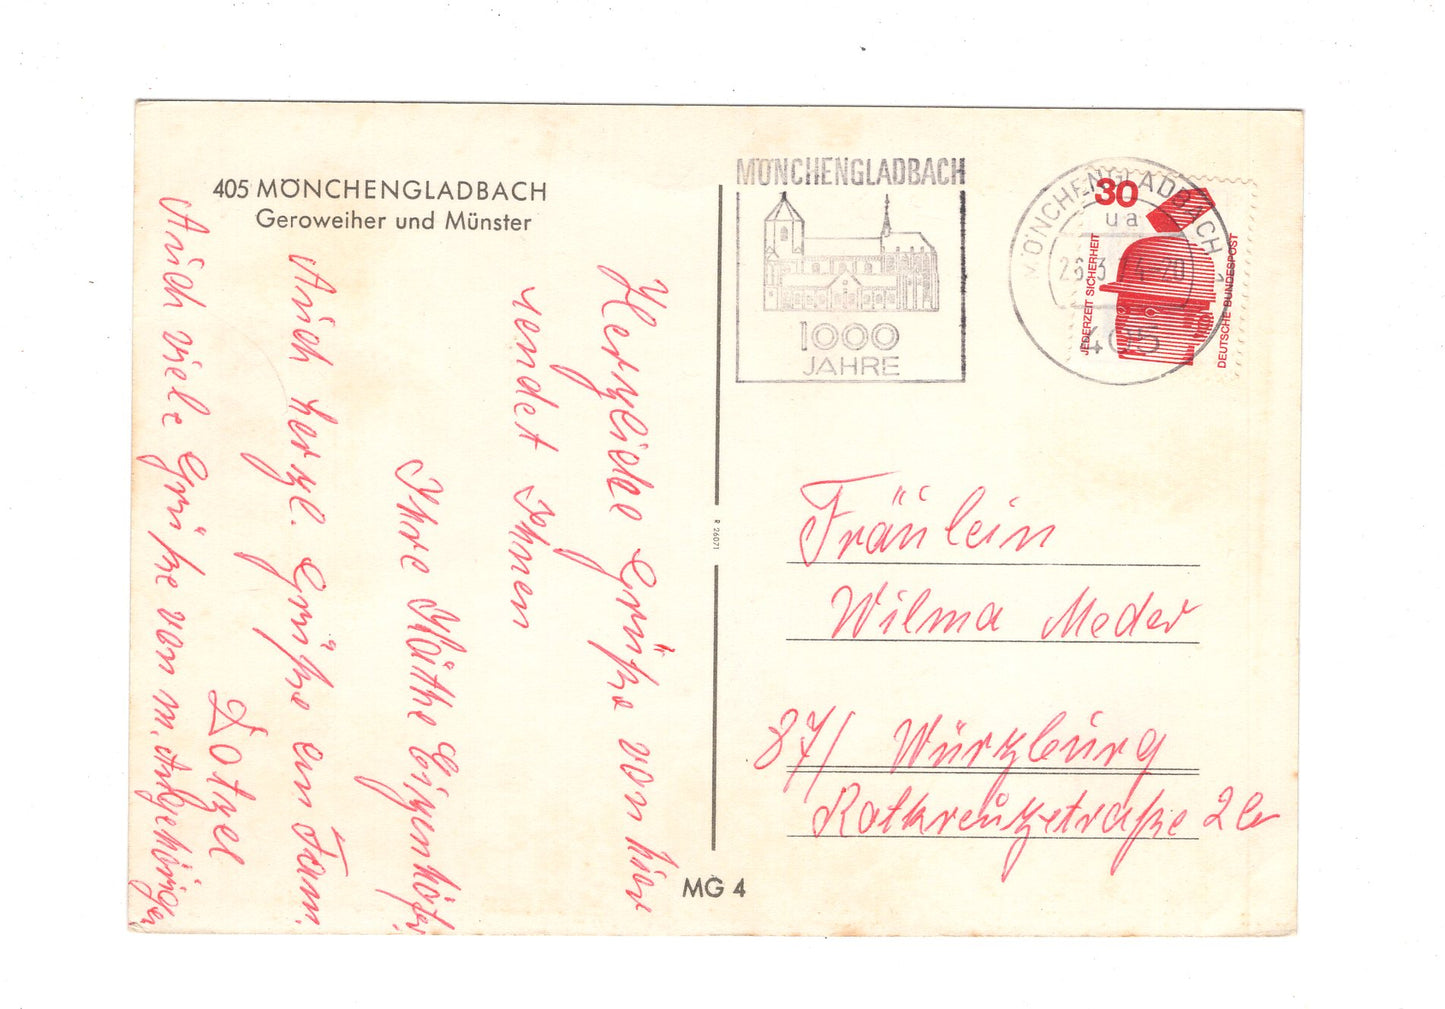 405 MÖNCHENGLADBACH
Geroweiher und Münster
Herzliche Grüße von hier
sendet Ihnen
Ihre Käthe Eizenhöfer
Auch herzl. Grüße an Fam.
Dotzel
Auch viele Grüße von m. Angehörigen
R 26071
MG 4
MÖNCHENGLADBACH
1000
JAHRE
MÖNCHENGLADBACH 1
ua
26.3.74-20
405
30
JEDERZEIT SICHERHEIT
DEUTSCHE BUNDESPOST
Fräulein
Wilma Meder
87/ Würzburg
Rotkreuzstraße 2a